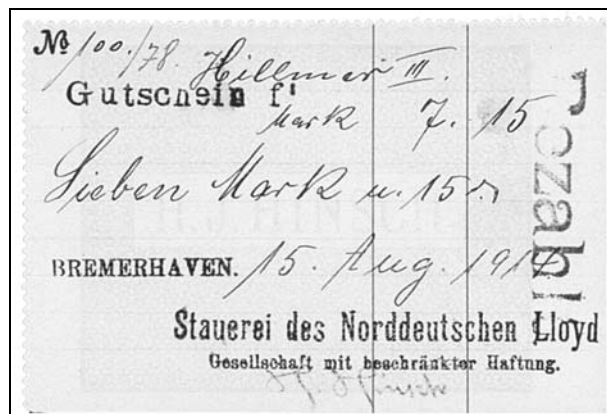 № 100./78. Hillmer III.
Gutschein f'
Mark 7. 15
Sieben Mark u. 15
BREMERHAVEN. 15. Aug. 1914
Stauerei des Norddeutschen Lloyd
Gesellschaft mit beschränkter Haftung.
H. J. HINSCH